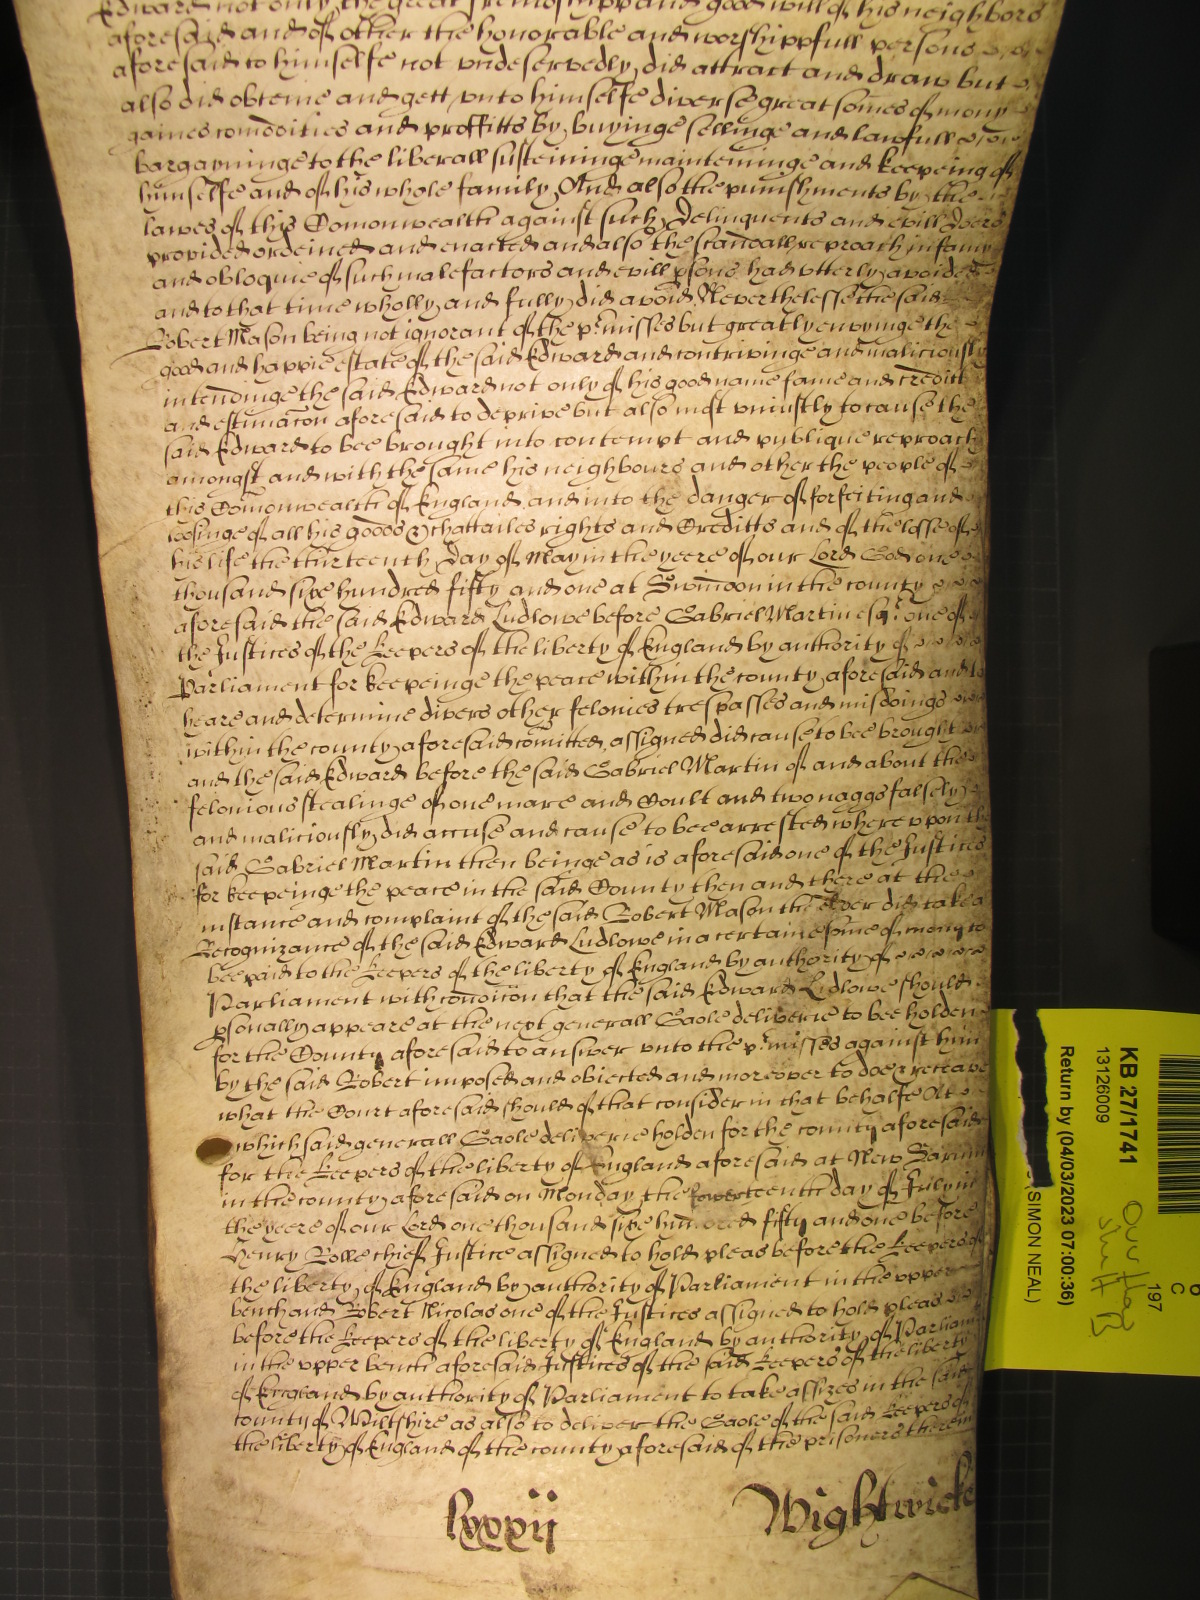 Edward not only the great frendshipp and good will of his neighbors
aforesaid and of other the honorable and worshippfull persons
aforesaid to himselfe not undeservedly did attract and draw but
also did obteine and gett unto himselfe diverse great somes of mony
gaines comodities and proffitts by buyinge sellinge and lawfull
bargayninge to the liberall susteininge mainteininge and keepeing of
himselfe and of his whole family And also the punishments by the
lawes of this Comonwealth against such Delinquents and evill doers
provided ordeined and enacted and also the scandall reproach infamy
and obloquie of such malefactors and evill psons had utterly avoided
and to that time wholly and fully did avoid Neverthelesse the said
Robert Mason being not ignorant of the pmisses but greatly envyinge the
good and happie estate of the said Edward and contrivinge and maliciously
intendinge the said Edward not only of his good name fame and creditt
and estimacon aforesaid to deprive but also most uniustly to cause the
said Edward to bee brought into contempt and publique reproach
amongst and with the same his neighbours and other the people of
this Comonwealth of England and into the danger of forfeiting and
loosinge of all his goods & chattailes rights and Creditts and of the losse of
his life the thirteenth day of May in the yeere of our Lord God one
thousand sixe hundred fifty and one at Swindon in the county
aforesaid the said Edward Ludlowe before Gabriel Martin esqr one of
the Justices of the Keepers of the liberty of England by authority of
Parliament for keepeinge the peace within the county aforesaid and to
heare and determine divers other felonies trespasses and misdoings
within the county aforesaid comitted assigned did cause to bee brought
and the said Edward before the said Gabriel Martin of and about the
felonious stealinge of one mare and Coult and two naggs falsely
and maliciously did accuse and cause to bee arrested whereupon the
said Gabriel Martin then beinge as is aforesaid one of the Justices
for keepeinge the peace in the said County then and there at the
instance and complaint of the said Robert Mason did take a
Recognizance of the said Edward Ludlowe in a certaine some of mony to
bee paid to the Keepers of the liberty of England by authority of
Parliament with condicon that the said Edward Ludlowe should
psonally appeare at the next generall Gaole deliverie to bee holden
for the County aforesaid to answer unto the pmisses against him
by the said Robert imposed and obiected and moreover to doe & receave
what the Court aforesaid should of that consider in that behalfe Att
which said generall Gaole deliverie holden for the county aforesaid
for the Keepers of the liberty of England aforesaid at New Sarum
in the county aforesaid on Monday the fowerteenth day of July in
the yeere of our Lord one thousand sixe hundred fifty and one before
Henry Rolle chief Justice assigned to hold pleas before the Keepers of
the liberty of England by authority of Parliament in the upper
bench and Robert Nicolas one of the Justices assigned to hold pleas
before the Keepers of the liberty of England by authority of Parliam
in the upper bench aforesaid Justices of the said Keepers of the liberty
of England by authority of Parliament to take assizes in the said
county of Wiltshire as also to deliver the Gaole of the said Keepers of
the liberty of England of the county aforesaid of the prisoners therein
lxxxii Wightwicke
KB 27/1741
13126009
Return by (04/03/2023 07:00:36)
(SIMON NEAL)
197
C